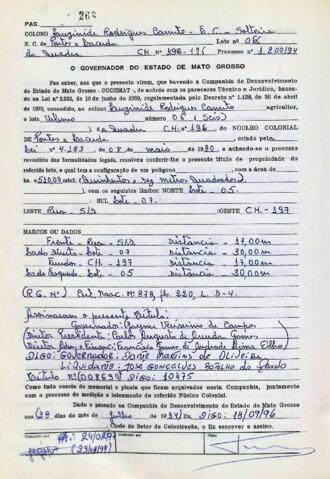 PAG. 268
COLONO Euzinide Rodrigues Canuto - E.C. - Solteira
N. C. de Pontes e Lacerda Lote nº 06
da Quadra CH. Nº 196-126 Processo nº 1.200/94
O GOVERNADOR DO ESTADO DE MATO GROSSO
Faz saber, aos que o presente virem, que havendo a Companhia de Desenvolvimento
do Estado de Mato Grosso - CODEMAT -, de acordo com os pareceres Técnico e Jurídico, basean-
do na Lei nº 2.993, de 10 de junho de 1969, regulamentada pelo Decreto nº 1.128, de 30 de abril
de 1970, concedido, ao colono Euzinide Rodrigues Canuto agricultor,
o lote Urbano número 06 (Seis)
da Quadra CH. nº 196, do NÚCLEO COLONIAL
de Pontes e Lacerda criado pela
Lei nº 4.183, de 08 de maio de 1980, e achando-se o processo
revestido das formalidades legais, resolveu conferir-lhe o presente título de propriedade do
referido lote, o qual tem a configuração de um polígono com a área de
510,00 m² (Quinhentos e dez metros Quadrados)
com os seguintes limites: NORTE Lote - 05.
SUL Lote - 07.
LESTE Rua - S/D OESTE CH. - 197
MARCOS OU DADOS
Frente - Rua - S/D Distância - 17,00m
Lado direito - Lote - 07 Distância - 30,00m
Fundos - CH. - 197 Distância - 17,00m
Lado Esquerdo - Lote - 05 Distância - 30,00m
(R.G. Nº) Cert. Nasc. Nº 878, fls. 220, L. D-4.
Assinaram o presente título:
Governador: Jayme Veríssimo de Campos
Diretor Presidente: Carlos Augusto de Arruda Gomes
Diretor Adm. e Financ: Francisco Gomes de Andrade Lima Filho
DIGO: GOVERNADOR: DANTE MARTINS DE OLIVEIRA
LIQUIDANTE: JOSÉ GONÇALVES BOTELHO do Prado
Título nº (008639) DIGO: 10475
Como tudo consta do memorial e planta que ficam arquivados nesta Companhia, juntamente
com o processo de medição e loteamento do referido Núcleo Colonial.
Dado e passado na Companhia de Desenvolvimento do Estado de Mato Grosso
aos (28 dias do mês de Julho de 1994) Eu, DIGO: 18/07/96
Chefe de Setor de Colonização, o fiz escrever e assino.
24/02/97
(29/08/94)